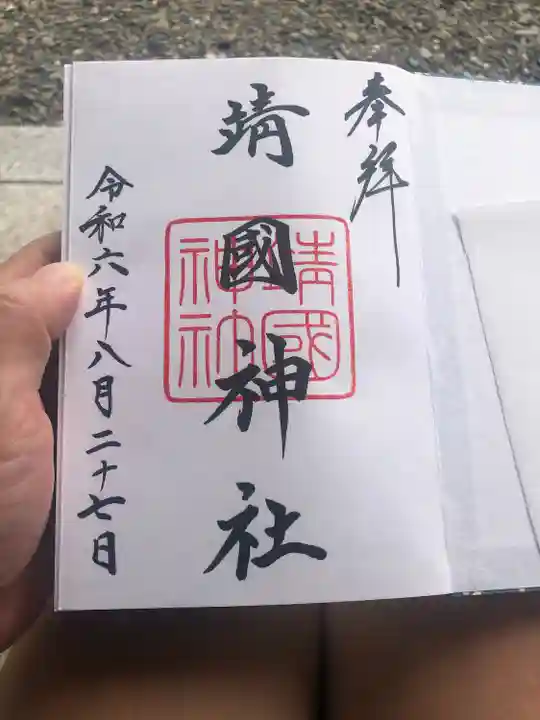 奉拜
靖國神社
靖國
神社
令和六年八月二十七日